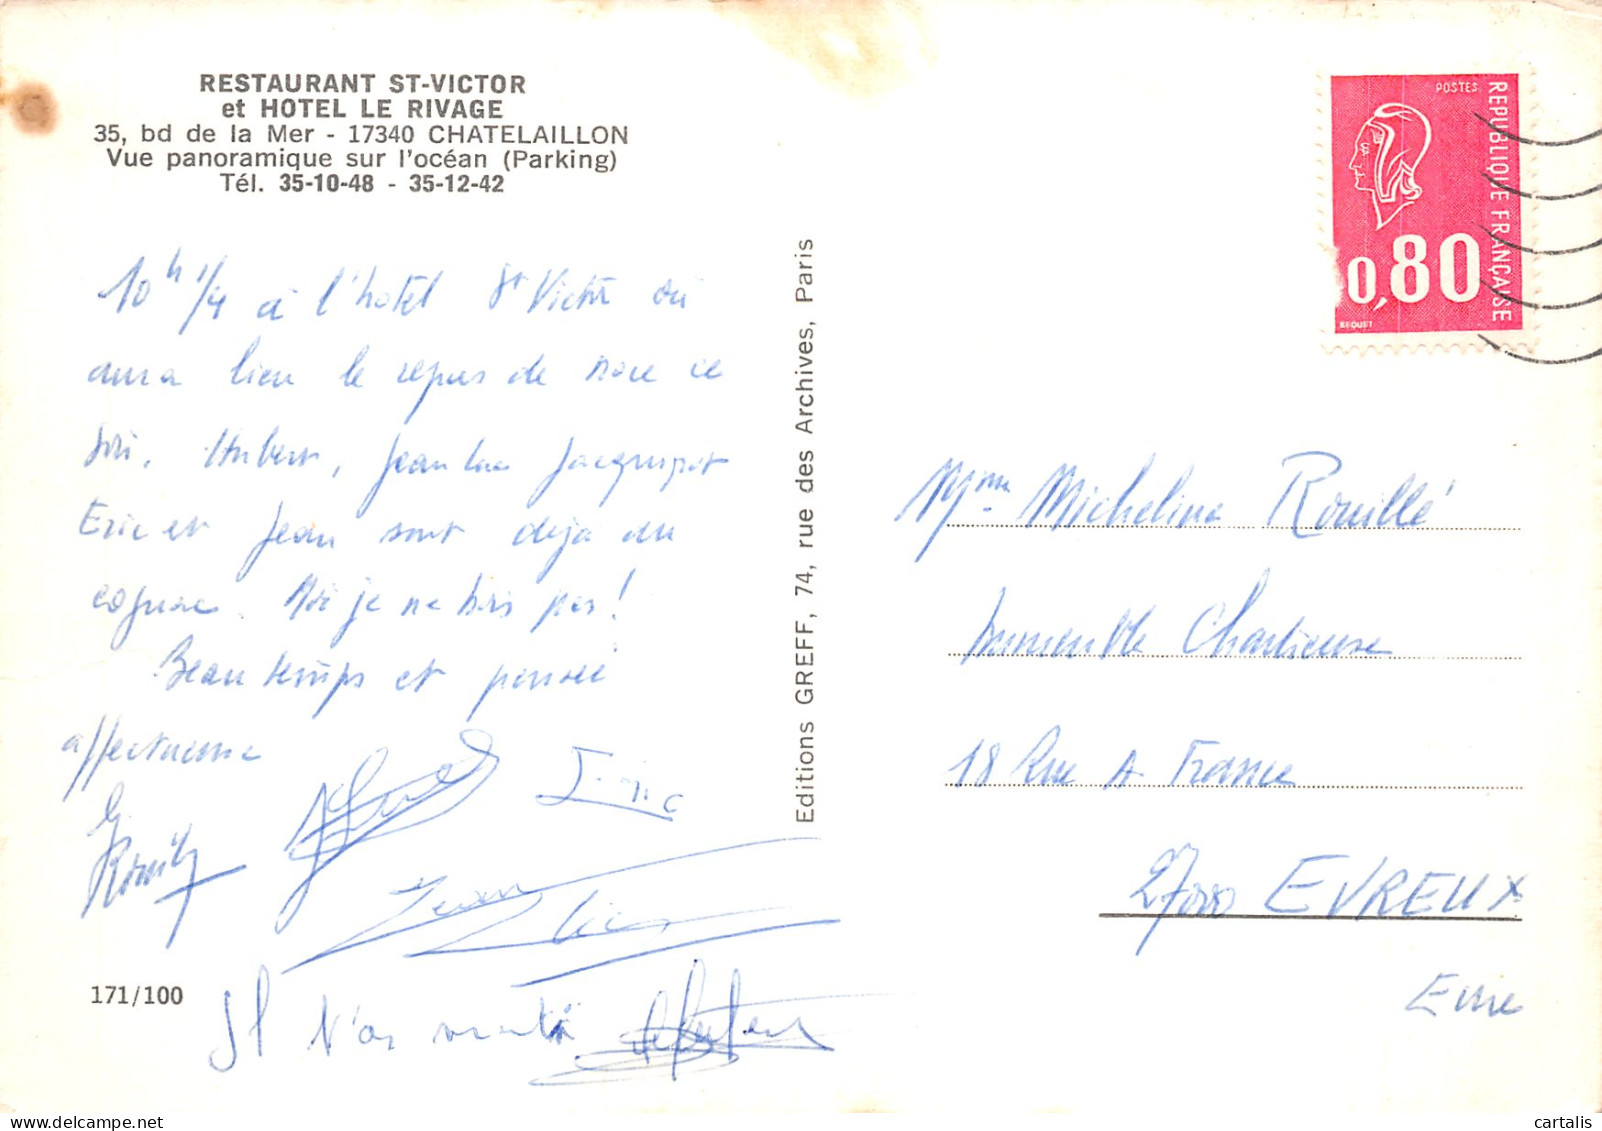 RESTAURANT ST-VICTOR
et HOTEL LE RIVAGE
35, bd de la Mer - 17340 CHATELAILLON
Vue panoramique sur l'océan (Parking)
Tél. 35-10-48 - 35-12-42
10h 1/4 à l'hotel St Victor où
aura lieu le repas de noce ce
soir. Hubert, Jean Luc Jacquepot
Eric et Jean sont déjà au
cognac. Moi je ne bois pas!
Beau temps et pensée
affectueuse
Eric
Jean Luc
Il n'as
171/100
Editions GREFF, 74, rue des Archives, Paris
POSTES
REPUBLIQUE FRANÇAISE
0,80
BEQUET
Mme Micheline Rouillé
Immeuble Chartreuse
18 Rue A France
27000 EVREUX
Eure
cartalis
www.delcampe.net